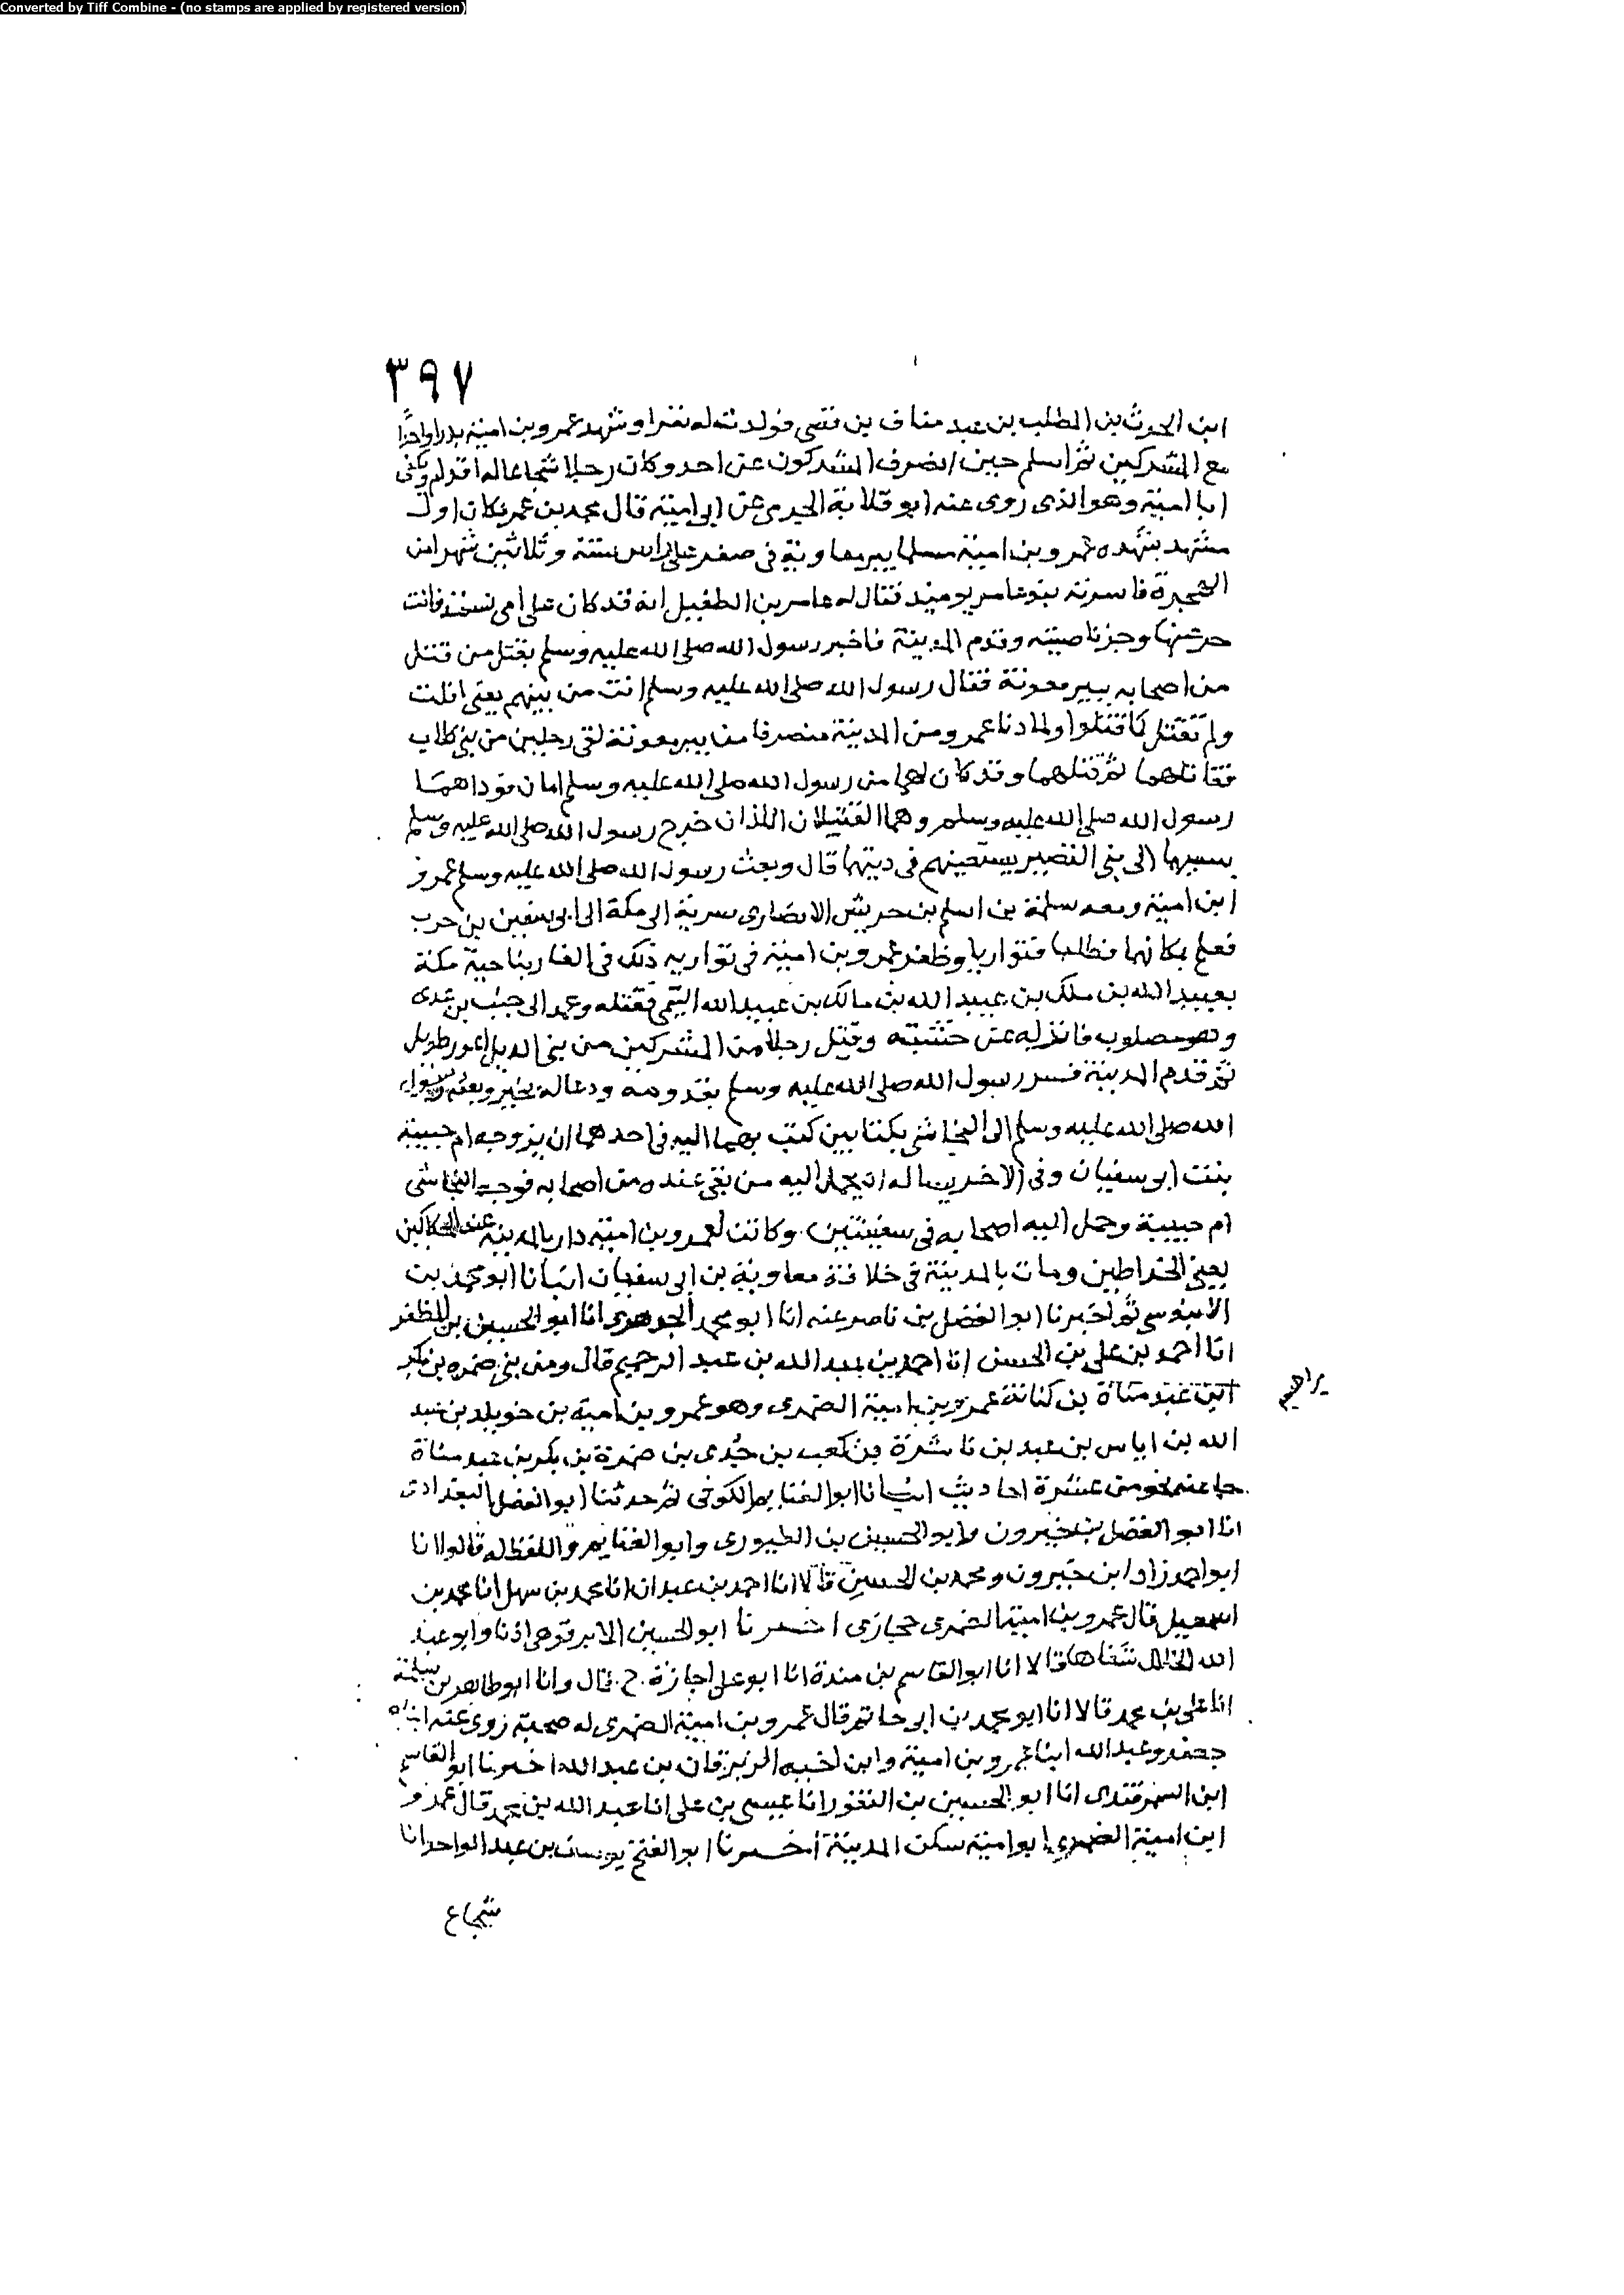 Converted by Tiff Combine - (no stamps are applied by registered version)
٣٩٧
ابن الحرث بن المطلب بن عبد مناف بن قصى فولدت له نفرا وشهد عمرو بن امية بدرا واحدا
مع المشركين ثم اسلم حين انصرف المشركون عن احد وكان رجلا شجاعا له اقدام ويكنى
ابا امية وهو الذى روى عنه ابو قلابة الجرمى عن ابى امية قال محمد بن عمر فكان اول
مشهد شهده عمرو بن امية مسلما بير معونة فى صفر على راس ستة وثلاثين شهرا من
الهجرة فاسرته بنو عامر يومئذ فقال له عامر بن الطفيل انه قد كان على امى نسمة فانت
حر عنها وجز ناصيته وقدم المدينة فاخبر رسول الله صلى الله عليه وسلم بقتل من قتل
من اصحابه ببير معونة فقال رسول الله صلى الله عليه وسلم انت من بينهم يعنى افلت
ولم تقتل كما قتلوا ولما دنا عمرو من المدينة منصرفا من بير معونة لقى رجلين من بنى كلاب
فقاتلهما ثم قتلهما وقد كان لهما من رسول الله صلى الله عليه وسلم امان فوداهما
رسول الله صلى الله عليه وسلم وهما القتيلان اللذان خرج رسول الله صلى الله عليه وسلم
بسببهما الى بنى النضير يستعينهم فى ديتهما قال وبعث رسول الله صلى الله عليه وسلم عمرو
ابن امية ومعه سلمة بن اسلم بن حريش الانصارى سرية الى مكة الى ابى سفين بن حرب
فعلم بمكانهما فطلبا فتواريا وظفر عمرو بن امية فى تواريه ذلك فى الغار بناحية مكة
بعبيد الله بن ملك بن عبيد الله بن مالك بن عبيد الله التيمى فقتله وعمد الى خبيب بن عدى
وهو مصلوب فانزله عن خشبته وقتل رجلا من المشركين من بنى الديل اعور طويل
ثم قدم المدينة فسر رسول الله صلى الله عليه وسلم بقدومه ودعا له بخير وبعثه رسول
الله صلى الله عليه وسلم الى النجاشى بكتابين كتب بهما اليه فى احدهما ان يزوجه ام حبيبة
بنت ابى سفيان وفى الاخر يساله ان يحمل اليه من بقى عنده من اصحابه فزوجه النجاشى
ام حبيبة وحمل اليه اصحابه فى سفينتين وكانت لعمرو بن امية دار بالمدينة عند الحكاكين
يعنى الخراطين ومات بالمدينة فى خلافة معاوية بن ابى سفيان انبانا ابو محمد بن
الابنوسى ثم اخبرنا ابو الفضل بن ناصر عنه انا ابو محمد الجوهرى انا ابو الحسين بن المظفر
انا احمد بن على بن الحسن انا احمد بن عبد الله بن عبد الرحيم قال ومن بنى ضمره بن بكر
ابن عبد مناة بن كنانة عمرو بن امية الضمرى وهو عمرو بن امية بن خويلد بن عبد
الله بن اياس بن عبد بن ناشرة بن كعب بن جدى بن ضمرة بن بكر بن عبد مناة
جا عنه نحو من عشرة احاديث انبانا ابو الغنايم الكوفى ثم حدثنا ابو الفضل البغدادى
انا ابو الفضل بن خيرون وابو الحسين بن الطيورى وابو الغنايم واللفظ له قالوا انا
ابو احمد زاد ابن خيرون ومحمد بن الحسين قالا انا احمد بن عبدان انا محمد بن سهل انا محمد بن
اسمعيل قال عمرو بن امية الضمرى حجازى اخبرنا ابو الحسين الابرقوهى اذنا وابو عبد
الله الخلال شفاها قالا انا ابو القاسم بن مندة انا ابو على اجازة ح قال وانا ابو طاهر بن سلمة
انا على بن محمد قالا انا ابو محمد بن ابى حاتم قال عمرو بن امية الضمرى له صحبة روى عنه ابناه
جعفر وعبد الله ابنا عمرو بن امية وابن اخيه الزبرقان بن عبد الله اخبرنا ابو القاسم
ابن السمرقندى انا ابو الحسين بن النقور انا عيسى بن على انا عبد الله بن محمد قال عمرو
ابن امية الضمرى ابو امية سكن المدينة اخبرنا ابو الفتح يوسف بن عبد الواحد انا
شجاع